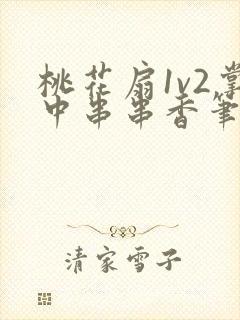 桃花扇1v2掌
中串串香笔
清家雪子